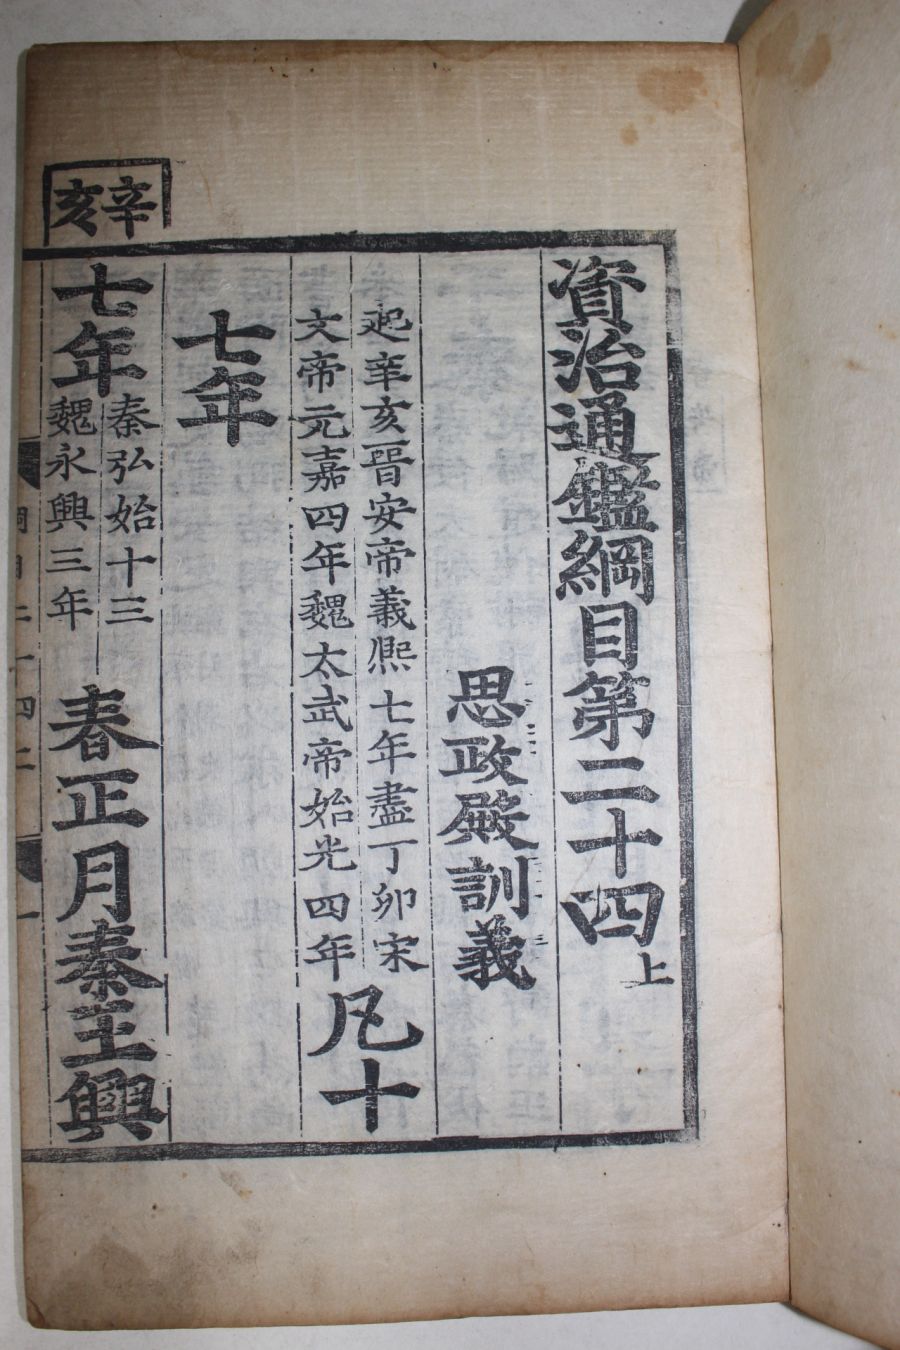 資治通鑑綱目第二十四上
思政殿訓義
起辛亥晉安帝義熙七年盡丁卯宋
文帝元嘉四年魏太武帝始光四年
凡十
七年
辛亥
七年
秦弘始十三
魏永興三年
春正月秦主興